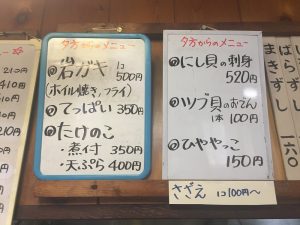 210円
210円
210円
夕方からのメニュー
岩ガキ 1コ 500円
(ホイル焼き,フライ)
てっぱい 350円
たけのこ
・煮付 350円
・天ぷら 400円
夕方からのメニュー
にし貝の刺身
520円
ツブ貝のおでん
1本 100円
ひややっこ
150円
さざえ 1コ100円〜
ばらずし
まきずし 一六〇